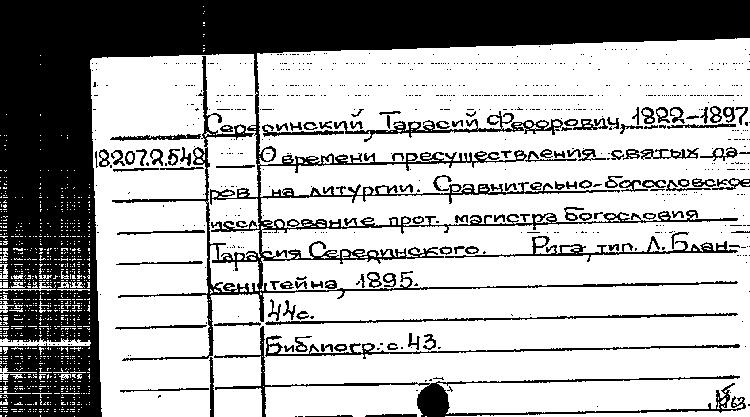 Серединский, Тарасий Федорович, 1822-1897.
18207.2.548 О времени пресуществления святых да-
ров на литургии. Сравнительно-богословское
исследование прот., магистра богословия
Тарасия Серединского. Рига, тип. Л. Блан-
кенштейна, 1895.
44с.
Библиогр.: с. 43.